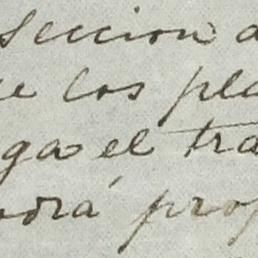 seccion a
e los pla
ga el tra
odrá prop